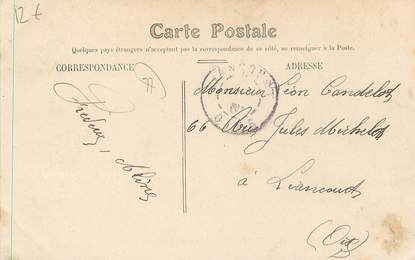 12 €
Carte Postale
Quelques pays étrangers n'acceptant pas la correspondance de ce côté, se renseigner à la Poste.
CORRESPONDANCE
ADRESSE
Monsieur Léon Candelot
66 Rue Jules Michelet
à Liancourt
(Oise)